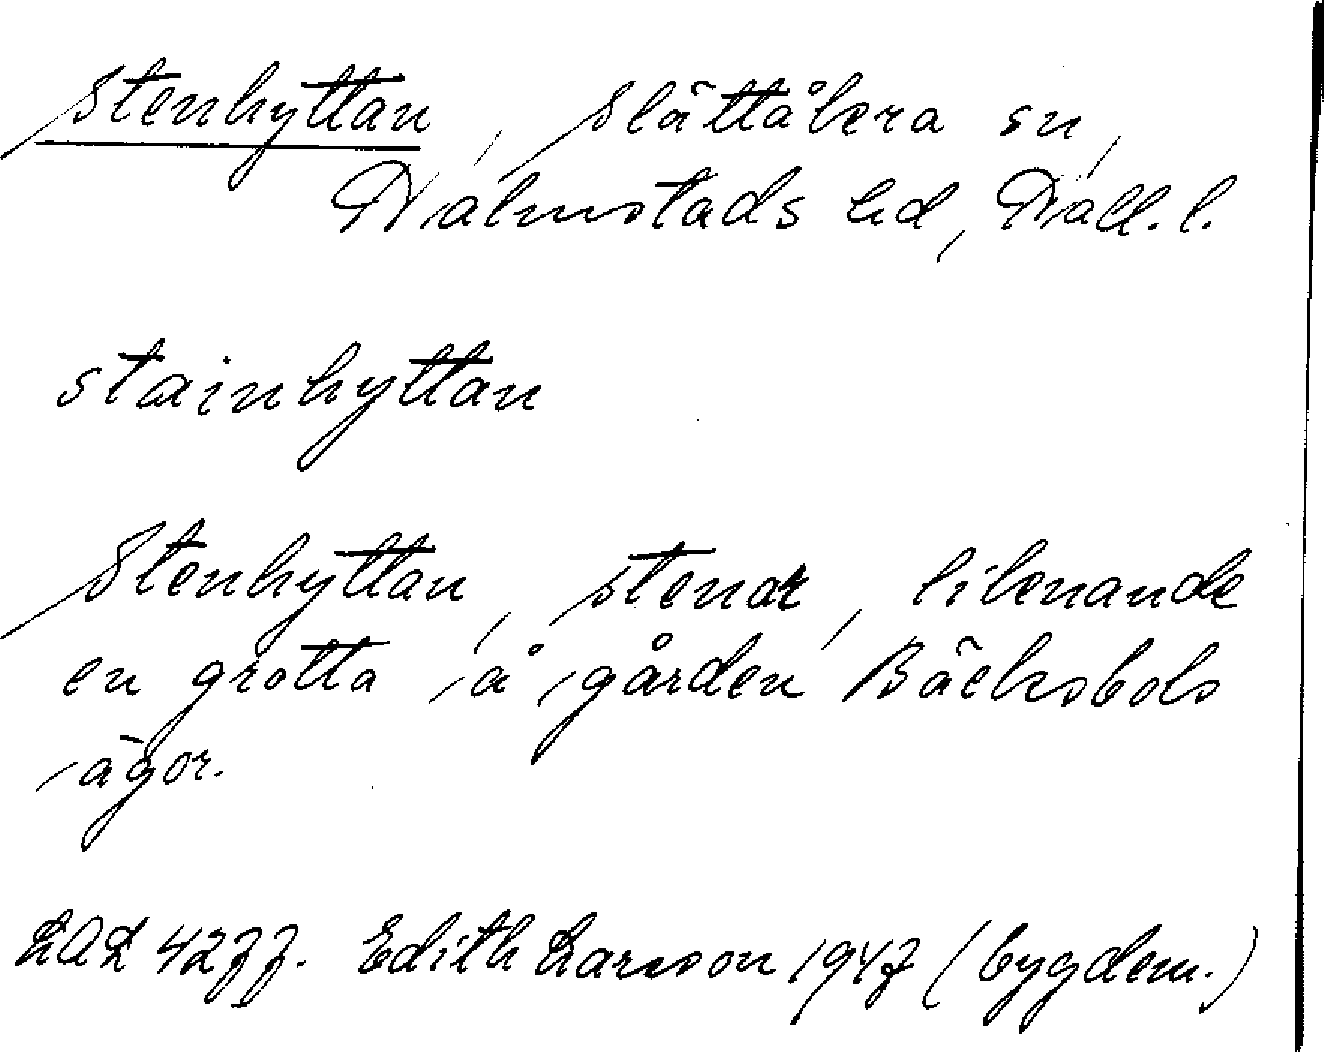 Stenhyttan, Slättåkra sn,
Halmstads hd, Hall. l.
stainhyttan
Stenhyttan, stenar, liknande
en grotta å gården Bäcksbols
ägor.
LAL 4277. Edith Larsson 1947 (bygdem.)